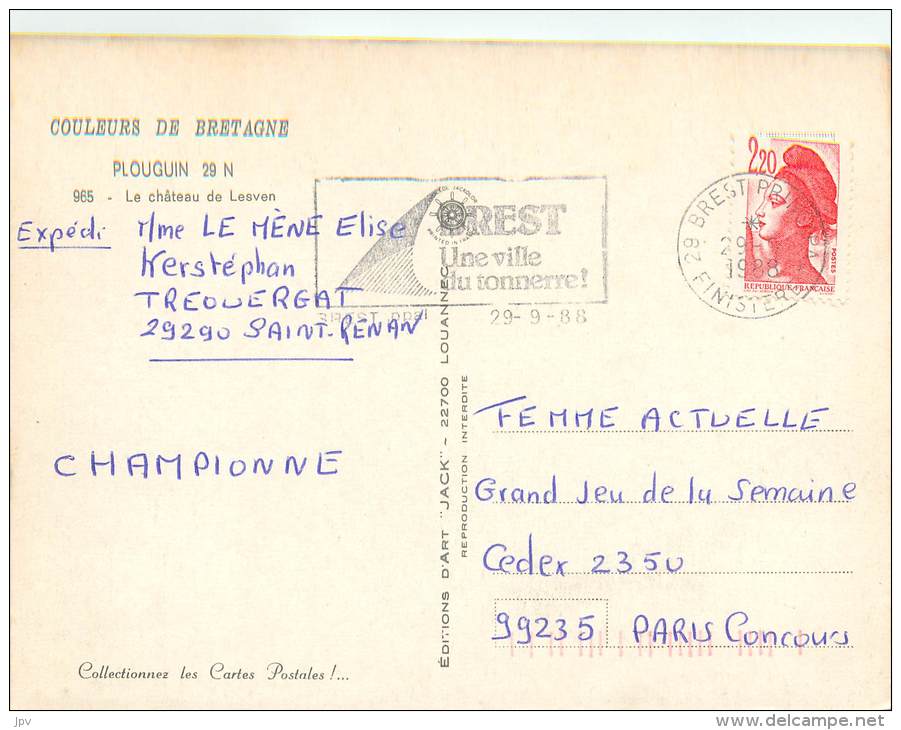 COULEURS DE BRETAGNE
PLOUGUIN 29 N
965 - Le château de Lesven
Expédi: Mme LE MÈNE Elise
Kerstéphan
TREOUERGAT
29290 SAINT-RENAN
CHAMPIONNE
Collectionnez les Cartes Postales !...
BREST
Une ville
du tonnerre!
BREST ppal 29-9-88
ÉDITIONS D'ART "JACK" - 22700 LOUANNEC
REPRODUCTION INTERDITE
2,20
POSTES
REPUBLIQUE FRANÇAISE
29 BREST PR
29-
1988
FINISTER
FEMME ACTUELLE
Grand Jeu de la Semaine
Cedex 2350
99235 PARIS Concours
jpv
www.delcampe.net